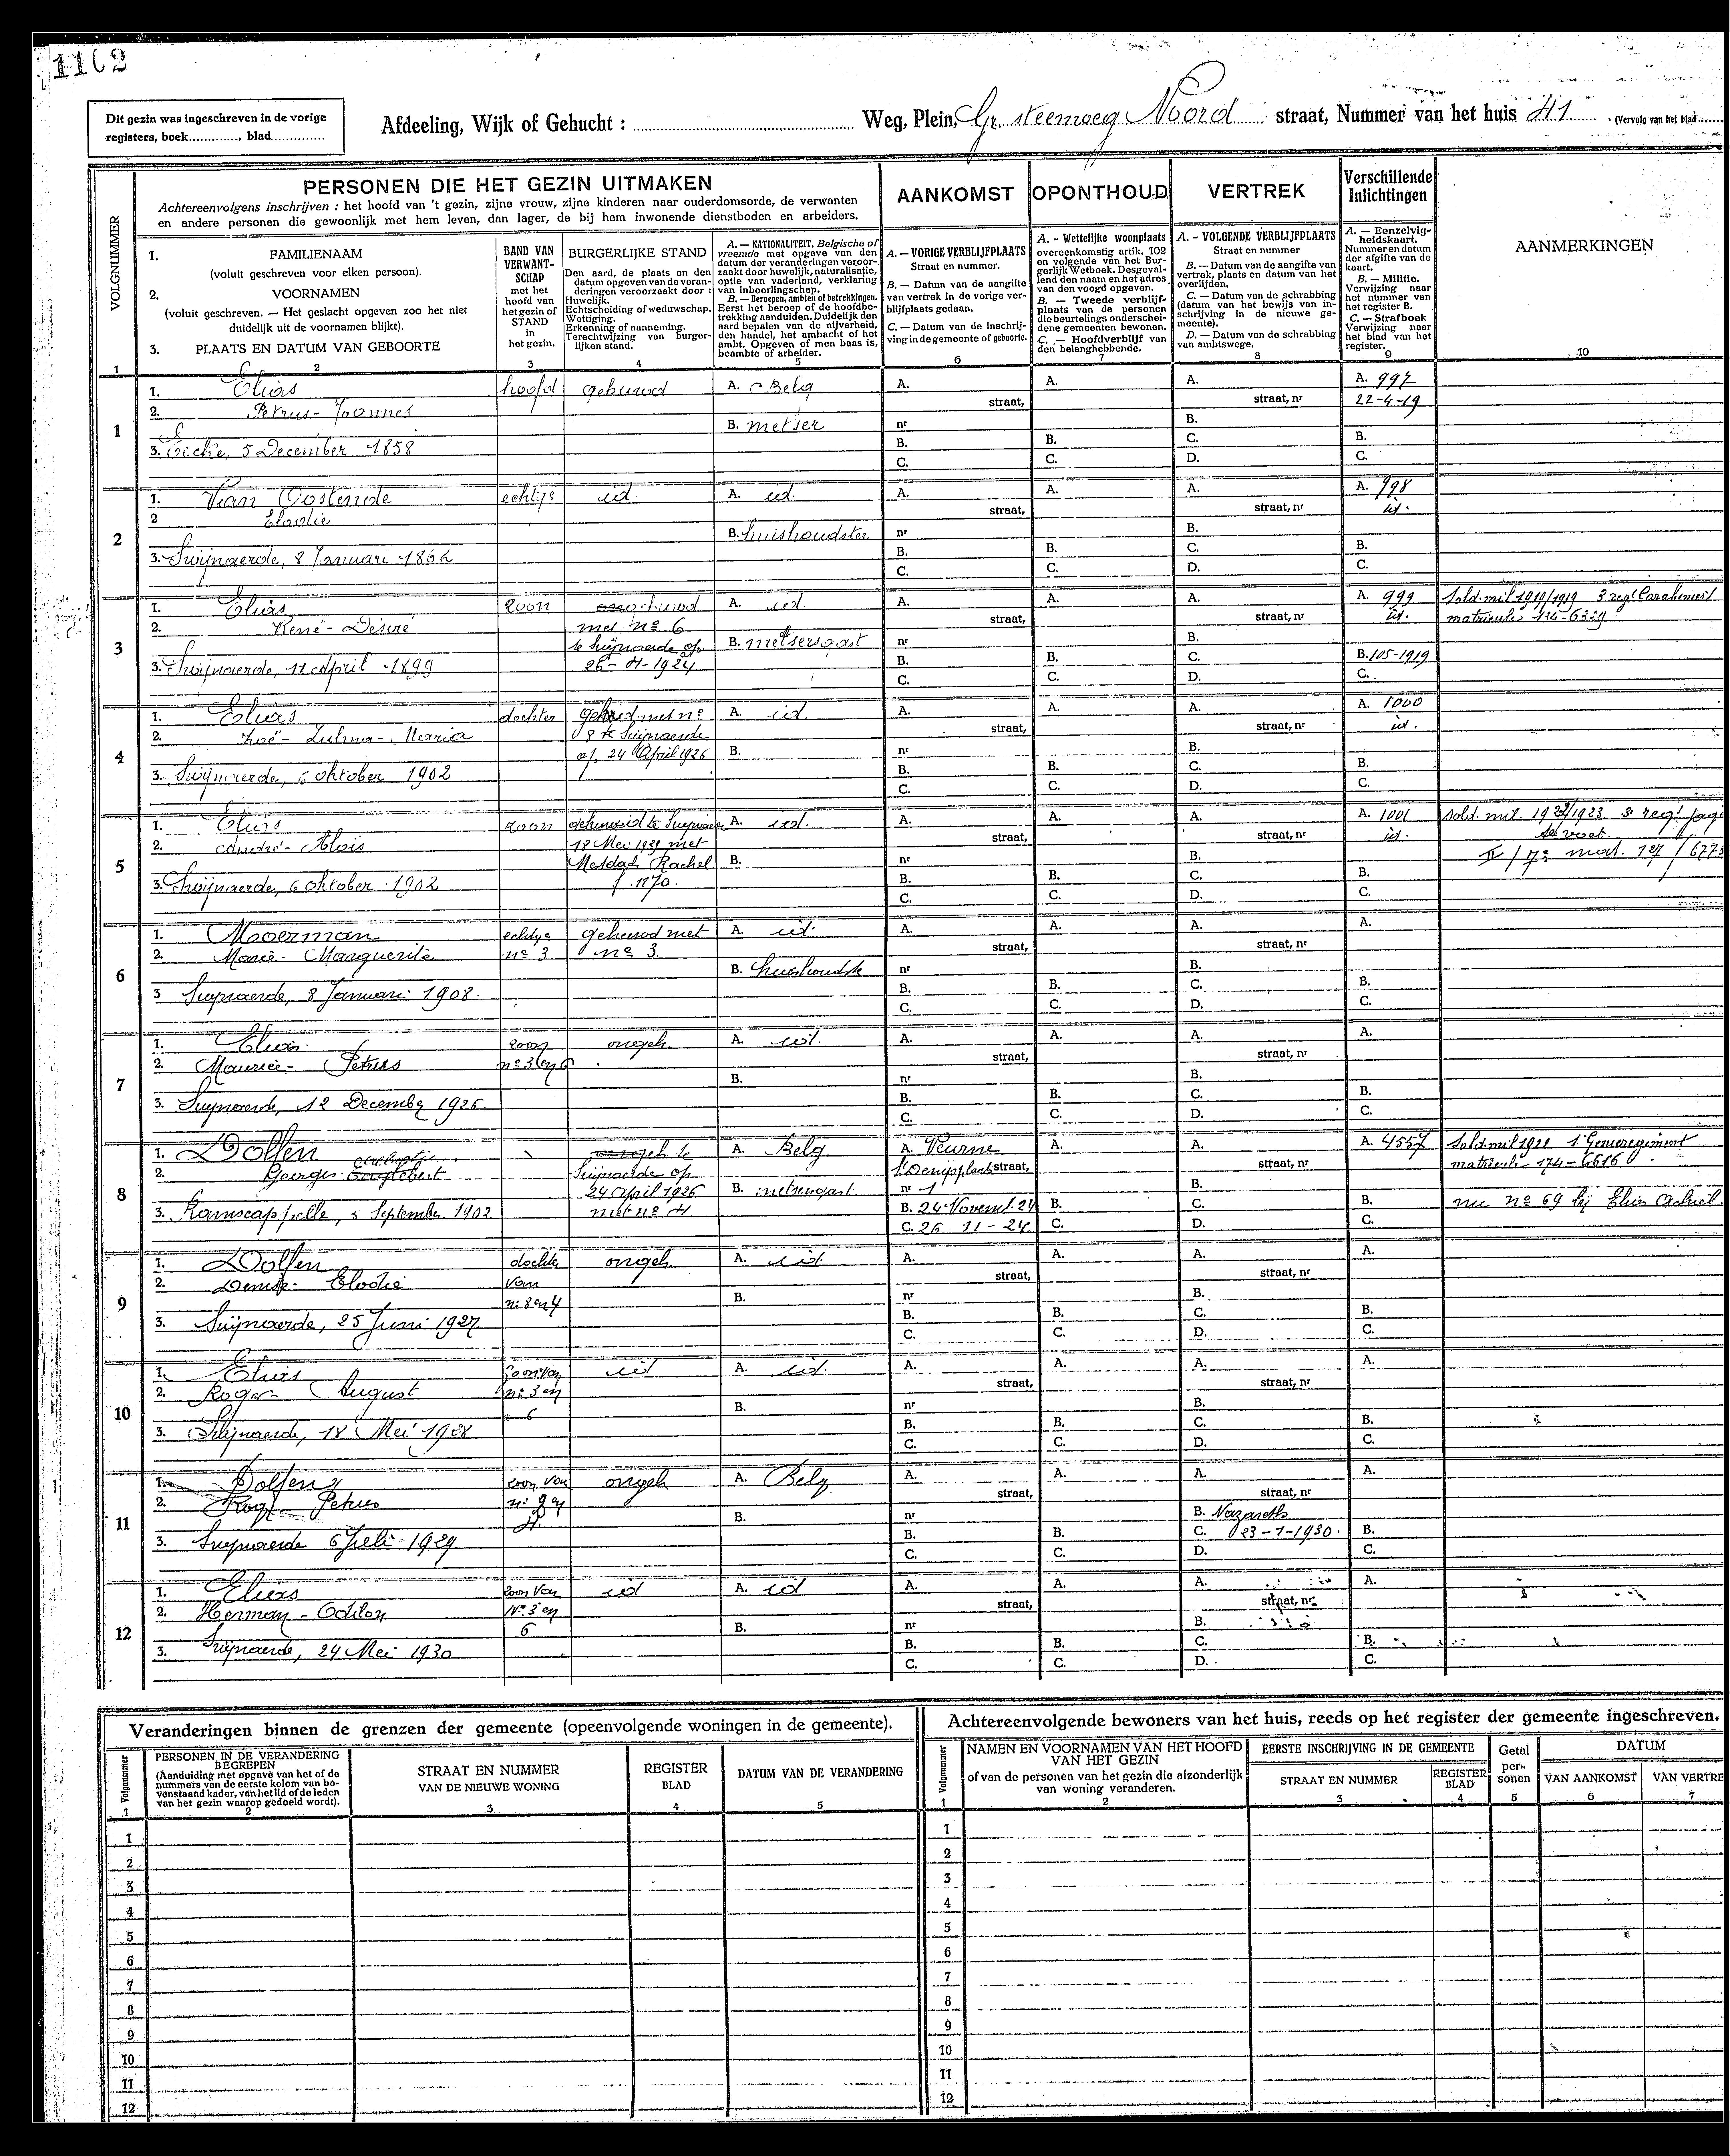 1102
Dit gezin was ingeschreven in de vorige
registers, boek............, blad.............
Afdeeling, Wijk of Gehucht : ............ Weg, Plein, Gr. steenweg Noord straat, Nummer van het huis 41 (Vervolg van het blad
VOLGNUMMER
PERSONEN DIE HET GEZIN UITMAKEN
Achtereenvolgens inschrijven : het hoofd van 't gezin, zijne vrouw, zijne kinderen naar ouderdomsorde, de verwanten
en andere personen die gewoonlijk met hem leven, dan lager, de bij hem inwonende dienstboden en arbeiders.
AANKOMST
OPONTHOUD
VERTREK
Verschillende
Inlichtingen
AANMERKINGEN
1. FAMILIENAAM
(voluit geschreven voor elken persoon).
2. VOORNAMEN
(voluit geschreven. — Het geslacht opgeven zoo het niet
duidelijk uit de voornamen blijkt).
3. PLAATS EN DATUM VAN GEBOORTE
BAND VAN
VERWANT-
SCHAP
met het
hoofd van
het gezin of
STAND
in
het gezin.
BURGERLIJKE STAND
Den aard, de plaats en den
datum opgeven van de veran-
deringen veroorzaakt door :
Huwelijk.
Echtscheiding of weduwschap.
Wettiging.
Erkenning of aanneming.
Terechtwijzing van burger-
lijken stand.
A. — NATIONALITEIT. Belgische of
vreemde met opgave van den
datum der veranderingen veroor-
zaakt door huwelijk, naturalisatie,
optie van vaderland, verklaring
van inboorlingschap.
B. — Beroepen, ambten of betrekkingen.
Eerst het beroep of de hoofdbe-
trekking aanduiden. Duidelijk den
aard bepalen van de nijverheid,
den handel, het ambacht of het
ambt. Opgeven of men baas is,
beambte of arbeider.
A. — VORIGE VERBLIJFPLAATS
Straat en nummer.
B. — Datum van de aangifte
van vertrek in de vorige ver-
blijfplaats gedaan.
C. — Datum van de inschrij-
ving in de gemeente of geboorte.
A. - Wettelijke woonplaats
overeenkomstig artik. 102
en volgende van het Bur-
gerlijk Wetboek. Desgeval-
lend den naam en het adres
van den voogd opgeven.
B. — Tweede verblijf-
plaats van de personen
die beurtelings onderschei-
dene gemeenten bewonen.
C. — Hoofdverblijf van
den belanghebbende.
A. - VOLGENDE VERBLIJFPLAATS
Straat en nummer
B. — Datum van de aangifte van
vertrek, plaats en datum van het
overlijden.
C. — Datum van de schrabbing
(datum van het bewijs van in-
schrijving in de nieuwe ge-
meente).
D. — Datum van de schrabbing
van ambtswege.
A. — Eenzelvig-
heidskaart.
Nummer en datum
der afgifte van de
kaart.
B. — Militie.
Verwijzing naar
het nummer van
het register B.
C. — Strafboek
Verwijzing naar
het blad van het
register.
1 2 3 4 5 6 7 8 9 10
1
1. Elias hoofd gehuwd A. Belg A. straat, A. A. straat, nr A. 997
2. Petrus-Joannes 22-4-19
B. metser nr B.
3. Eecke, 5 December 1858 B. B. C. B.
C. C. D. C.
2
1. Van Oostende echtge id A. id. A. straat, A. A. straat, nr A. 998
2 Elodie id.
B. huishoudster nr B.
3. Swijnaerde, 8 Januari 1862 B. B. C. B.
C. C. D. C.
3
1. Elias zoon gehuwd A. id. A. straat, A. A. straat, nr A. 999 Sold. mil 1919/1919 3 regt Carabiniers
2. René-Désiré met nº 6 id. matricule 134-6329
te Swijnaerde op B. metsersgast nr B.
3. Swijnaerde, 11 April 1899 26-4-1924 B. B. C. B. 105-1919
C. C. D. C.
4
1. Elias dochter gehuwd met nº A. id. A. straat, A. A. straat, nr A. 1000
2. Zoé-Zulma-Maria 8 te Swijnaerde id.
op 24 April 1926 B. nr B.
3. Swijnaerde, 6 oktober 1902 B. B. C. B.
C. C. D. C.
5
1. Elias zoon gehuwd te Swijnaerde A. id. A. straat, A. A. straat, nr A. 1001 sold. mil. 1922/1923 3e regt
2. André-Aloïs 18 Mei 1929 met id. te voet.
Mesdach Rachel B. nr B. II / 7e mat. 127 / 6773
3. Swijnaerde, 6 oktober 1902 f. 1170. B. B. C. B.
C. C. D. C.
6
1. Moerman echtge gehuwd met A. id. A. straat, A. A. straat, nr A.
2. Marie-Marguerite nº 3 nº 3.
B. huishoudste nr B.
3 Swijnaerde, 8 Januari 1908. B. B. C. B.
C. C. D. C.
7
1. Elias zoon ongeh. A. id. A. straat, A. A. straat, nr A.
2. Maurice-Petrus nº 3 en 6
B. nr B.
3. Swijnaerde, 12 December 1926. B. B. C. B.
C. C. D. C.
8
1. Dolfen ongeh te A. Belg A. Veurne A. A. A. 4557 Sold. mil 1922 1 Genieregiment
2. Georges Englebert Swijnaerde op St Denijsplaats straat, straat, nr matricule 174-6616
24 April 1926 B. metsersgast nr 1 B.
3. Ramscappelle, 3 September 1902 met nº 4 B. 24 Novemb. 24 B. C. B. nu nº 69 bij Elias Achiel
C. 26 11-24. C. D. C.
9
1. Dolfen dochte ongeh. A. id. A. straat, A. A. straat, nr A.
2. Denise-Elodie van
nº 8 en 4 B. nr B.
3. Swijnaerde, 25 Juni 1927 B. B. C. B.
C. C. D. C.
10
1. Elias zoon van id A. id. A. straat, A. A. straat, nr A.
2. Roger-August nº 3 en
6 B. nr B.
3. Swijnaerde, 18 Mei 1928 B. B. C. B.
C. C. D. C.
11
1. Dolfen zoon van ongeh A. Belg A. straat, A. A. straat, nr A.
2. Petrus nº 8 en
4. B. nr B. Nazareth
3. Swijnaerde 6 Juli 1929 B. B. C. 23-1-1930. B.
C. C. D. C.
12
1. Elias zoon van id A. id A. straat, A. A. straat, nr A.
2. Herman-Odilon Nº 3 en
6 B. nr B.
3. Swijnaerde, 24 Mei 1930 B. B. C. B.
C. C. D. C.
Veranderingen binnen de grenzen der gemeente (opeenvolgende woningen in de gemeente).
Volgnummer
PERSONEN IN DE VERANDERING
BEGREPEN
(Aanduiding met opgave van het of de
nummers van de eerste kolom van bo-
venstaand kader, van het lid of de leden
van het gezin waarop gedoeld wordt).
STRAAT EN NUMMER
VAN DE NIEUWE WONING
REGISTER
BLAD
DATUM VAN DE VERANDERING
1 2 3 4 5
1
2
3
4
5
6
7
8
9
10
11
12
Achtereenvolgende bewoners van het huis, reeds op het register der gemeente ingeschreven.
Volgnummer
NAMEN EN VOORNAMEN VAN HET HOOFD
VAN HET GEZIN
of van de personen van het gezin die afzonderlijk
van woning veranderen.
EERSTE INSCHRIJVING IN DE GEMEENTE
STRAAT EN NUMMER
REGISTER
BLAD
Getal
per-
sonen
DATUM
VAN AANKOMST
VAN VERTRE
1 2 3 4 5 6 7
1
2
3
4
5
6
7
8
9
10
11
12